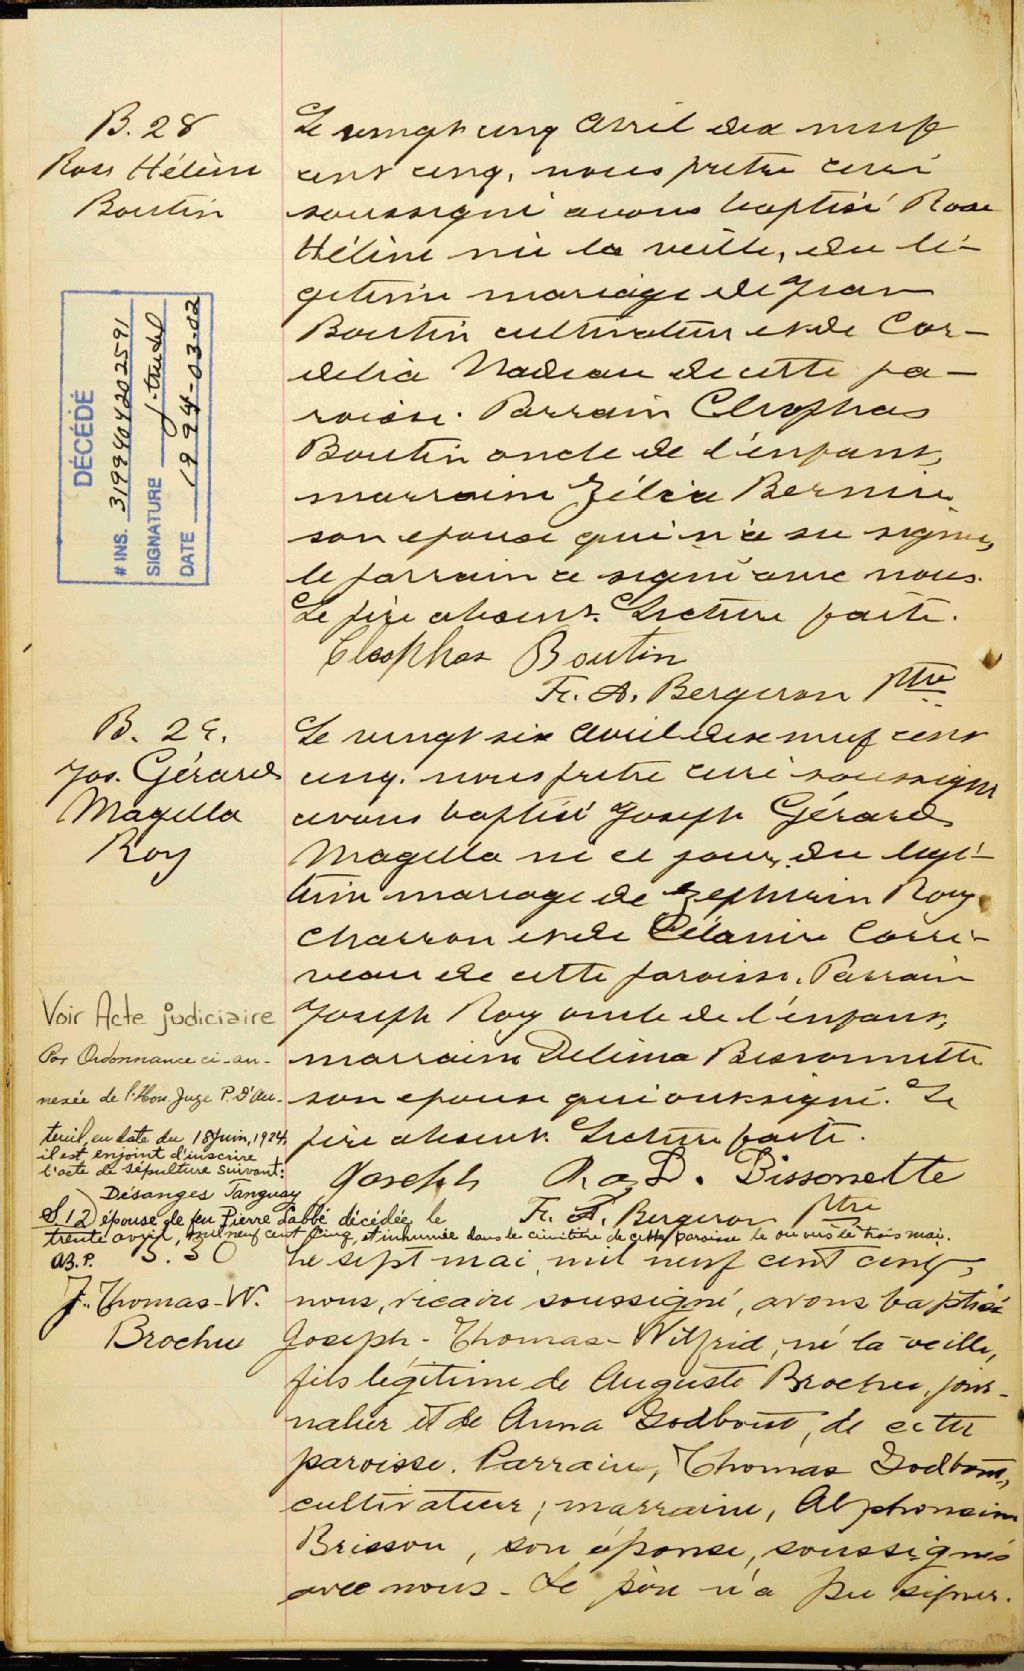 B. 28
Rose Hélène
Boutin
Le vingt cinq avril dix neuf
cent cinq, nous prêtre curé
soussigné avons baptisé Rose
Hélène née la veille, du lé-
gitime mariage de Jean
Boutin cultivateur et de Cor-
delia Nadeau de cette pa-
roisse. Parrain Cléophas
Boutin oncle de l'enfant,
marraine Zélia Bernier
son épouse qui n'a su signer,
le parrain a signé avec nous.
Le père absent. Lecture faite.
Cleophas Boutin
Fr. A. Bergeron Ptre
DÉCÉDÉ
# INS. 3199404202591
SIGNATURE
DATE 1994-03-02
B. 29.
Jos. Gérard
Magella
Roy
Le vingt six avril dix neuf cent
cinq. nous prêtre curé soussigné
avons baptisé Joseph Gérard
Magella né ce jour, du légi-
time mariage de Zephirin Roy
charron et de Célanire Corri-
veau de cette paroisse. Parrain
Joseph Roy oncle de l'enfant,
marraine Delima Bissonnette
son épouse qui ont signé. Le
père absent. Lecture faite.
Joseph Roy D. Bissonette
Fr. A. Bergeron Ptre
Voir Acte judiciaire
Par Ordonnance ci-an-
nexée de l'Hon. Juge P. D'Au-
teuil, en date du 18 juin, 1924,
il est enjoint d'inscrire
l'acte de sépulture suivant:
Désanges Tanguay
S. 12) épouse de feu Pierre Labbé décédée le
trente avril, mil neuf cent cinq, et inhumée dans le cimitière de cette paroisse le ou vers le trois mai.
B. 30
J.-Thomas-W.
Brochu
Le sept mai, mil neuf cent cinq,
nous, vicaire soussigné, avons baptisé
Joseph-Thomas-Wilfrid, né la veille,
fils légitime de Auguste Brochu, jour-
nalier et de Anna Godbout, de cette
paroisse. Parrain, Thomas Godbout,
cultivateur; marraine, Alphonsine
Brisson, son épouse, soussignés
avec nous. Le père n'a pu signer.